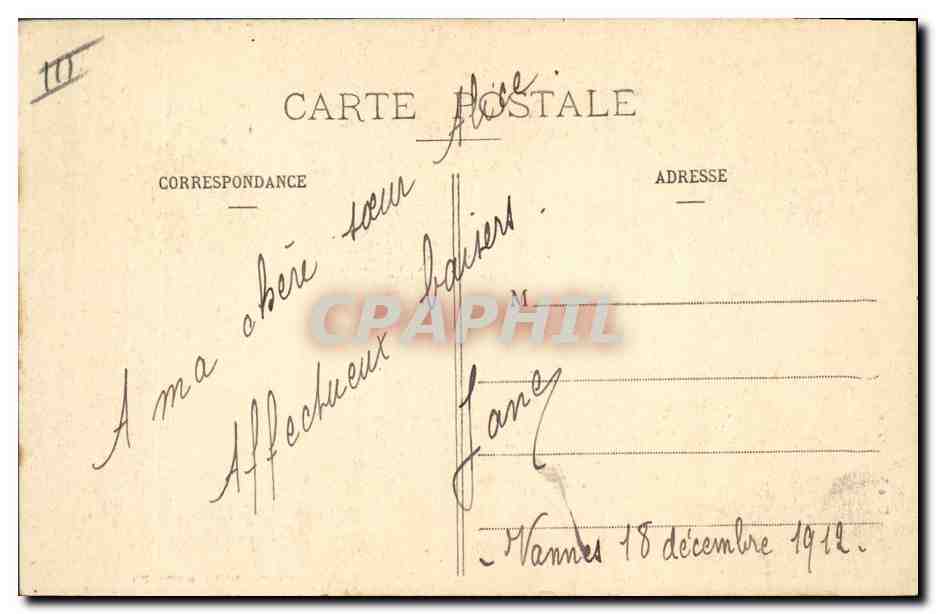 III
CARTE POSTALE
CORRESPONDANCE
ADRESSE
A ma chère sœur Alice.
Affectueux baisers.
M
CPAPHIL
Jane
Vannes 18 décembre 1912.